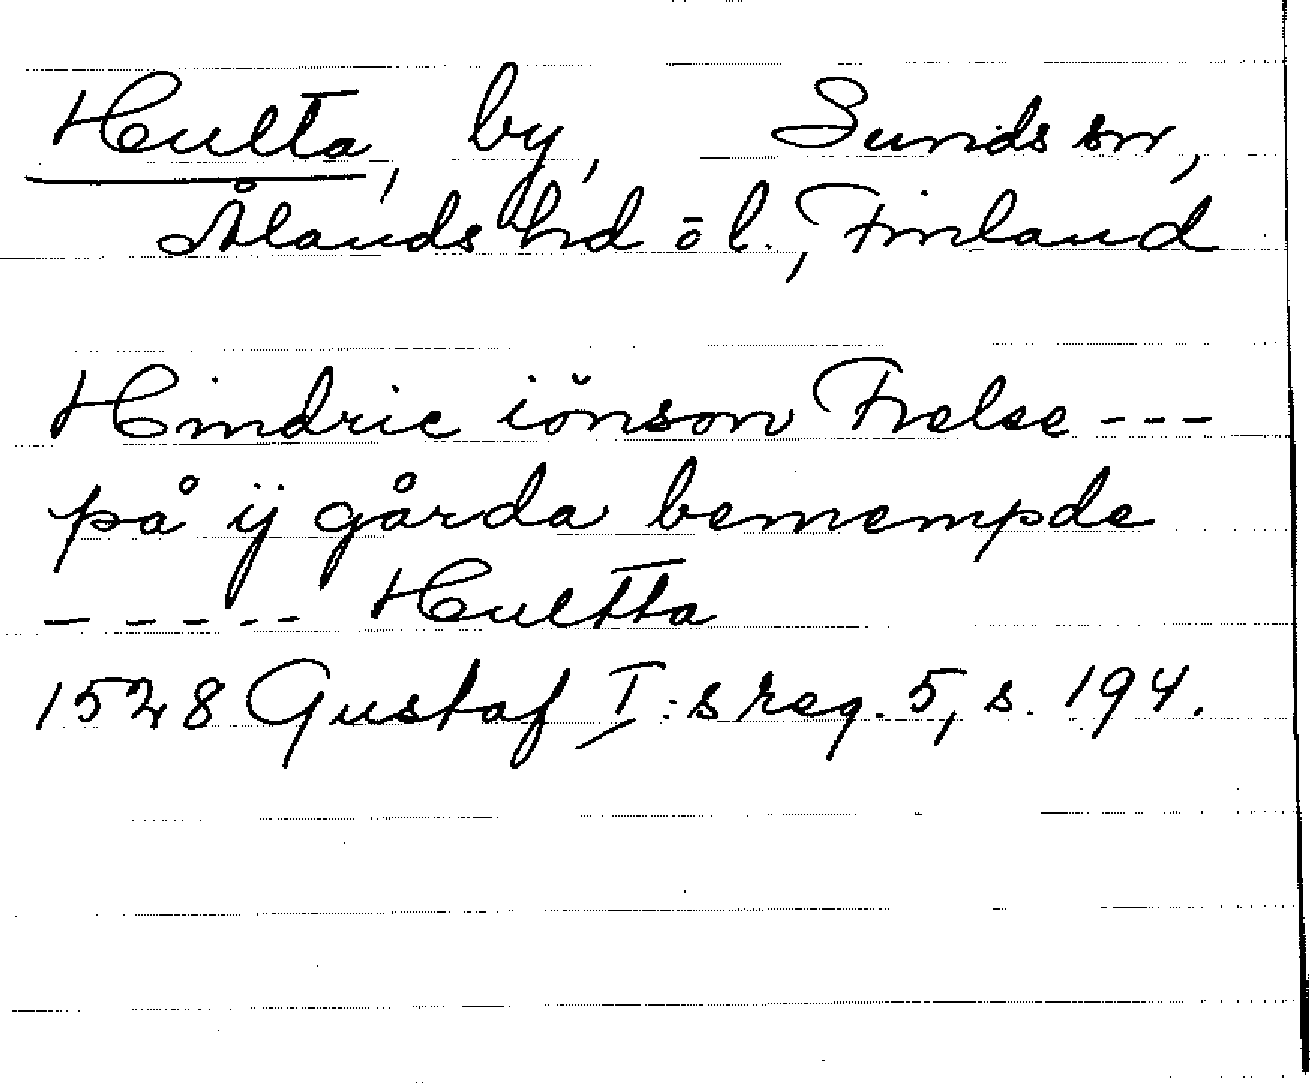 Hulta, by, Sunds sn,
Ålands hd ö l., Finland
Hindric iönson Frelse ---
på ij gårda benempde
----- Hultta
1528 Gustaf I:s reg. 5, s. 194.